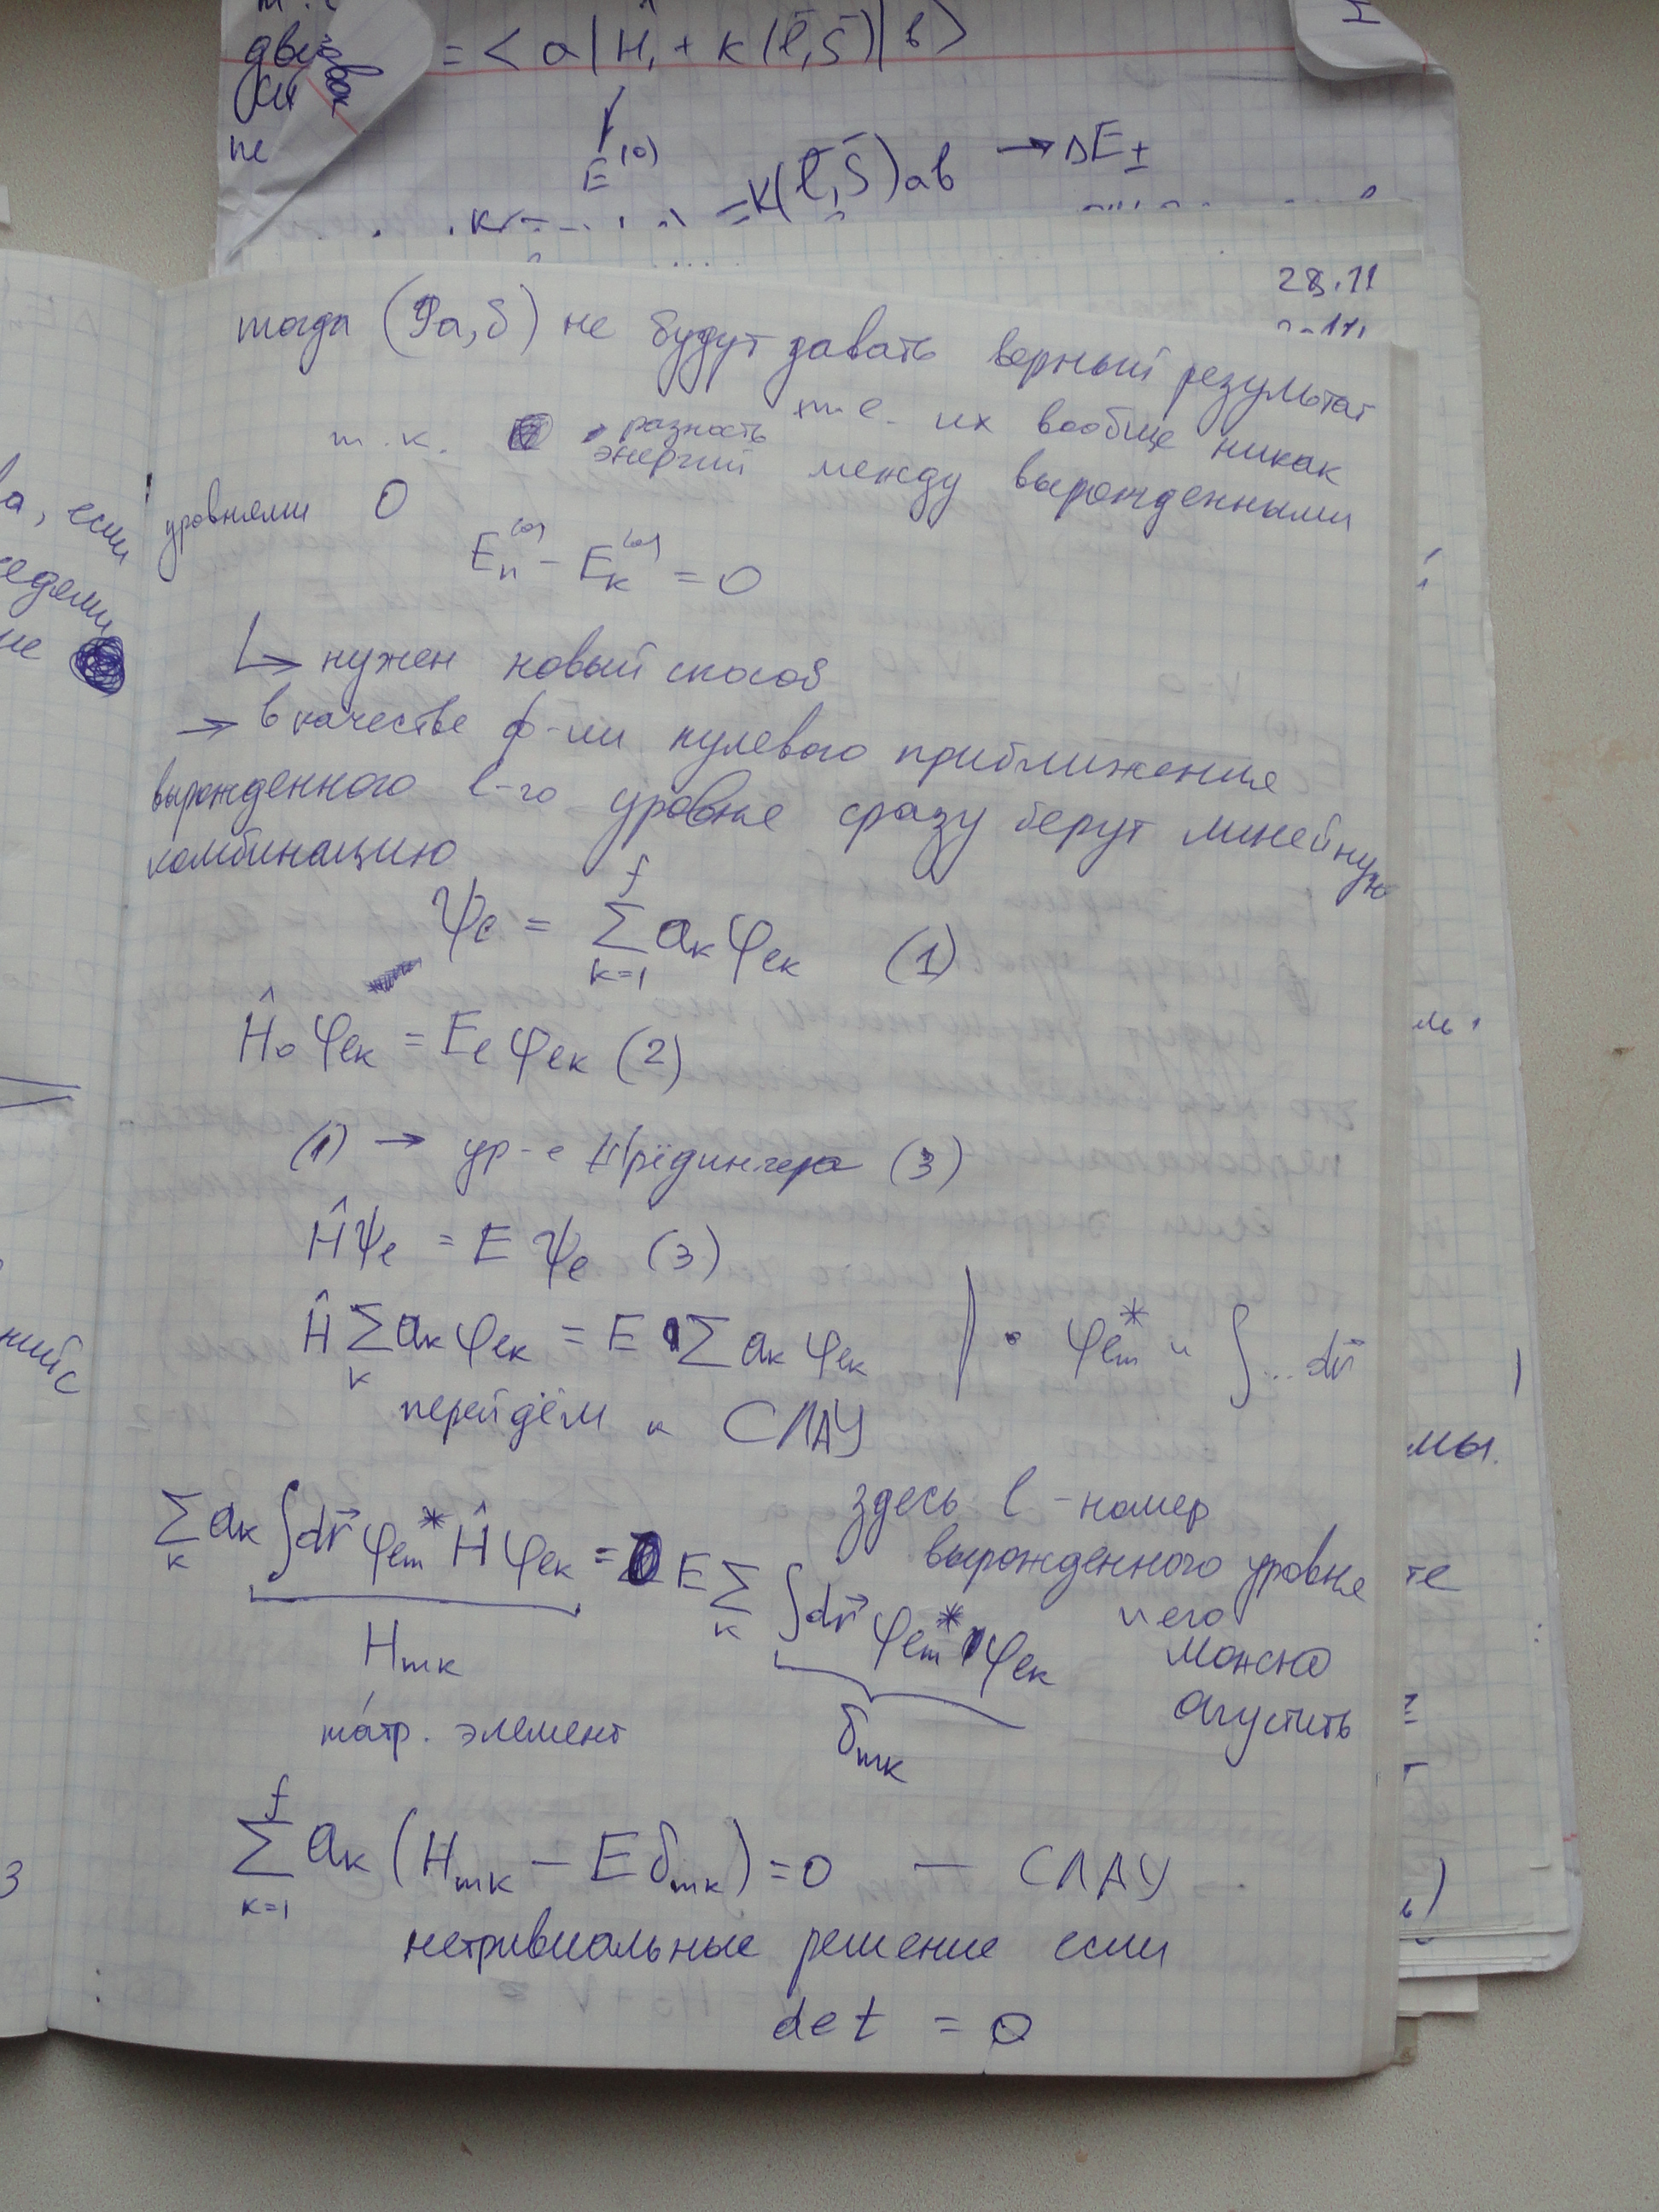 две
= <a|Ĥ, + к(l̄,S̄)|b>
не
E⁽⁰⁾
= к(l̄,S̄)ab → ΔE±
28.11
тогда (9а,б) не будут давать верный результат
т.е. их вообще никак
т.к. разность энергий между вырожденными
уровнями 0
Eₙ⁽⁰⁾ - Eₖ⁽⁰⁾ = 0
↳ нужен новый способ
→ в качестве ф-ии нулевого приближения
вырожденного l-го уровня сразу берут линейную
комбинацию
ψₗ = Σ_{k=1}^{f} aₖ φₗₖ (1)
Ĥ₀ φₗₖ = Eₗ φₗₖ (2)
(1) → ур-е Шрёдингера (3)
Ĥψₗ = E ψₗ (3)
Ĥ Σ_k aₖ φₗₖ = E Σ aₖ φₗₖ | · φₗₘ* и ∫...dr⃗
перейдём к СЛАУ
Σ_k aₖ ∫dr⃗ φₗₘ* Ĥ φₗₖ = E Σ_k ∫dr⃗ φₗₘ* φₗₖ
здесь l - номер
вырожденного уровня
и его
можно
опустить
Hₘₖ
матр. элемент
δₘₖ
Σ_{k=1}^{f} aₖ (Hₘₖ - E δₘₖ) = 0 — СЛАУ
нетривиальные решение если
det = 0
ва, если
не
мы.
те